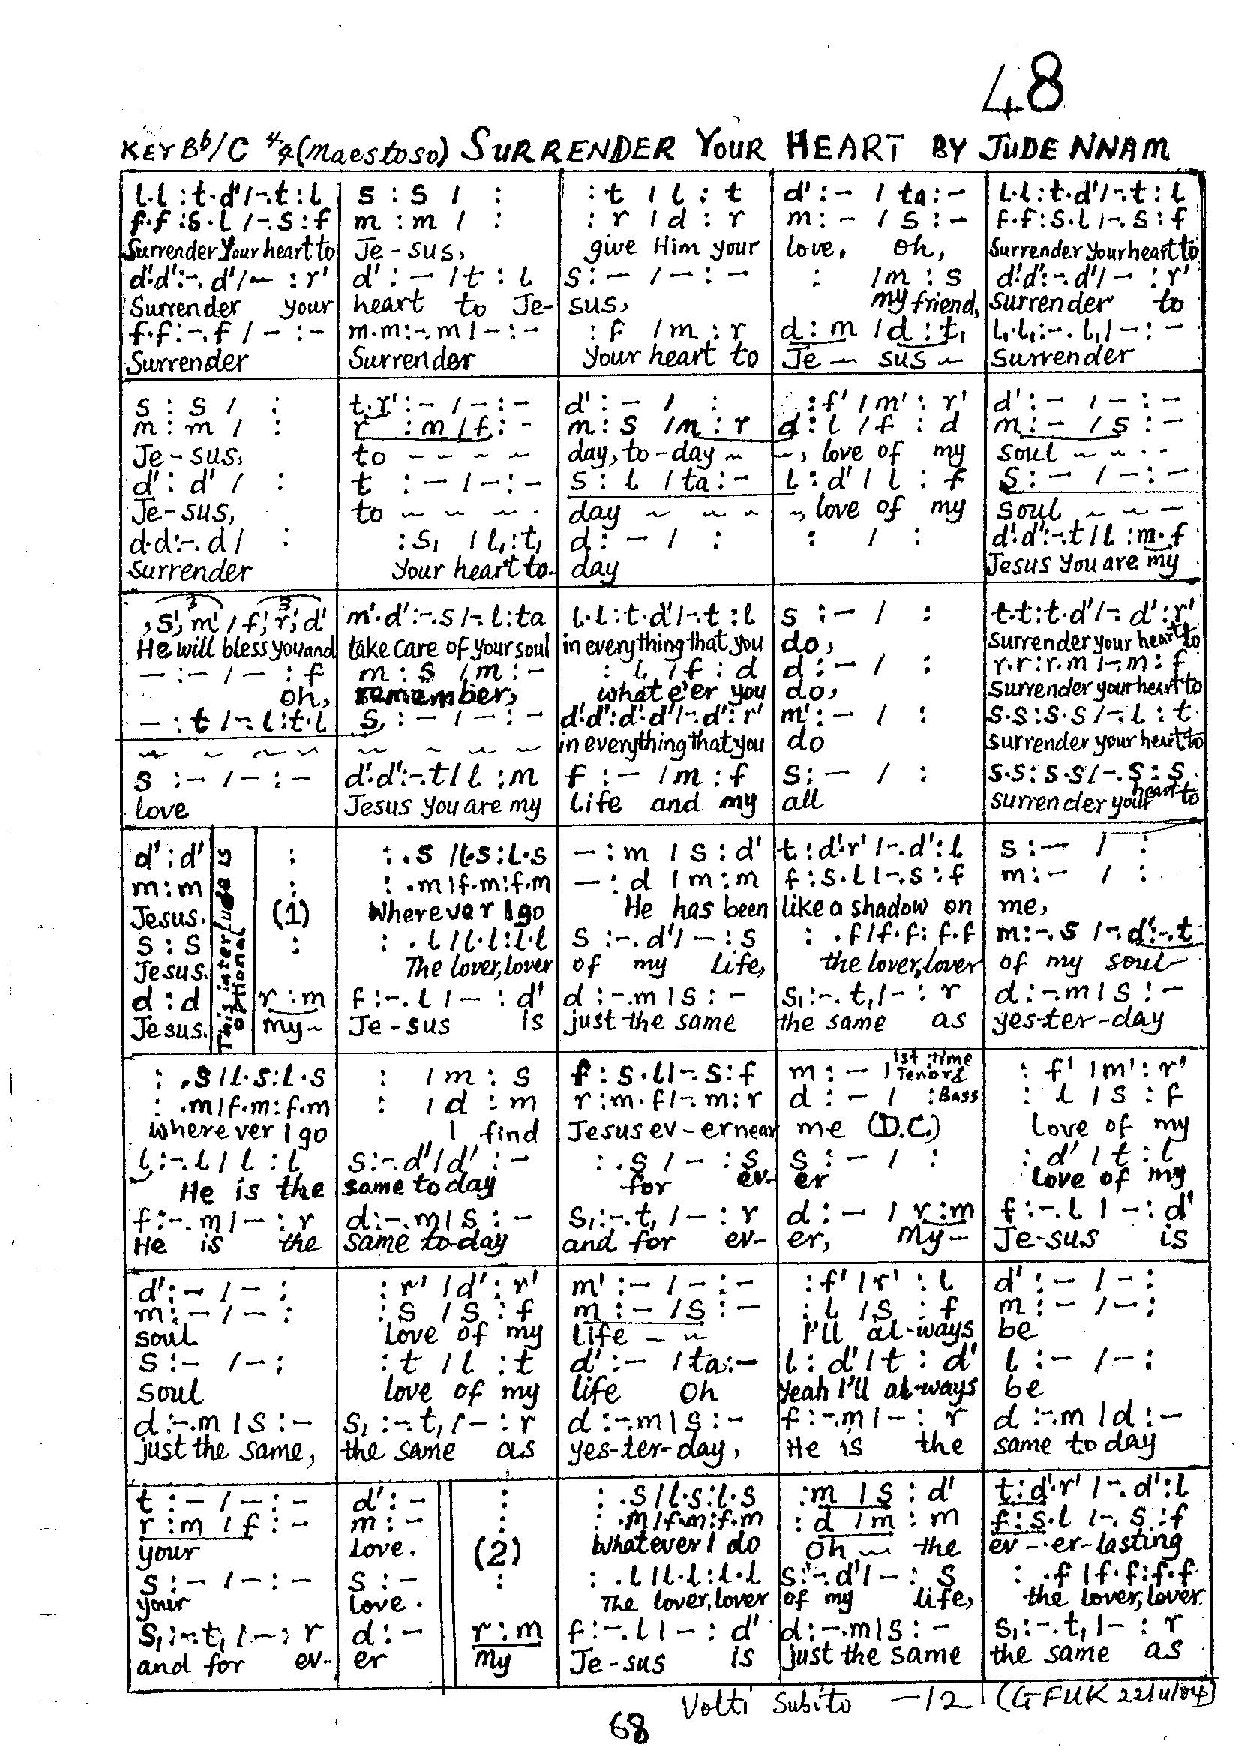 48
KEY Bb/C 4/4 (Maestoso) SURRENDER YOUR HEART BY JUDE NNAM
l.l :t.d'/-.t : l | s : s / : | : t / l : t | d' : - / ta : - | l.l : t.d'/-.t : l
f.f :s.l /-.s : f | m : m / : | : r / d : r | m : - / s : - | f.f : s.l /-.s : f
Surrender Your heart to | Je-sus, | give Him your | love, oh, | Surrender your heart to
d'.d':-.d'/- : r' | d' : - / t : l | s : - / - : - | : /m : s | d'.d':-.d'/ - : r'
Surrender your | heart to Je- | sus, | my friend, | surrender to
f.f :-.f / - : - | m.m:-.m / - : - | : f /m : r | d : m /d : t, | l,.l,:-.l, / - : -
Surrender | Surrender | your heart to | Je - sus - | Surrender
s : s / : | t.r' : - / - : - | d' : - / : | : f' /m' : r' | d' : - / - : -
m : m / : | r : m /f : - | m : s /m : r | d : l /f : d | m : - /s : -
Je-sus, | to - - - - | day, to-day ~ | -, love of my | soul ~ ~ - -
d' : d' / : | t : - / - : - | s : l /ta : - | l : d' / l : f | s : - / - : -
Je-sus, | to ~ ~ ~ - | day ~ ~ ~ | ~, love of my | soul ~ ~ ~
d.d:-.d / : | : s, / l, : t, | d : - / : | : / : | d'.d':-.t / l : m.f
surrender | your heart to- | day | | Jesus you are my
,s',m' / f',r',d' | m'.d':-.s /-.l : ta | l.l : t.d'/-.t : l | s : - / : | t.t : t.d'/-.d' : r'
He will bless you and | take care of your soul | in everything that you | do, | surrender your heart to
- : - / - : f | m : s /m : - | : l, /f : d | d : - / : | r.r : r.m /-.m : f
oh, | remember, | what e'er you | do, | surrender your heart to
- : t /-.l : t.l | s, : - / - : - | d'.d':d'.d'/-.d':r' | m' : - / : | s.s : s.s /-.l : t
~ ~ ~ ~ | ~ ~ ~ ~ | in everything that you | do | surrender your heart to
s : - / - : - | d'.d':-.t / l : m | f : - /m : f | s : - / : | s.s : s.s /-.s : s
love | Jesus you are my | life and my | all | surrender your heart to
d' : d' | : | : .s /l.s : l.s | - : m / s : d' | t : d'.r' /-.d' : l | s : - / :
m : m | : | : .m /f.m : f.m | - : d / m : m | f : s.l /-.s : f | m : - / :
Jesus. | This interlude is optional | (1) | Wherever I go | He has been | like a shadow on | me,
s : s | : | : .l /l.l : l.l | s :-.d' / - : s | : .f /f.f : f.f | m :-.s /-.d' :-.t
Jesus. | The lover, lover | of my life, | the lover, lover | of my soul-
d : d | r : m | f :-.l / - : d' | d :-.m / s : - | s, :-.t, / - : r | d :-.m / s : -
Jesus. | my~ | Je-sus is | just the same | the same as | yes-ter-day
: .s /l.s : l.s | : /m : s | f : s.l /-.s : f | m : - / 1st time Tenord | : f' /m' : r'
: .m /f.m : f.m | : /d : m | r : m.f /-.m : r | d : - / : Bass | : l / s : f
wherever I go | I find | Jesus ev-er near | me (D.C.) | Love of my
l :-.l / l : l | s :-.d' /d' : - | : .s / - : s | s : - / : | : d' / t : l
He is the | same today | for ev- | er | love of my
f :-.m / - : r | d :-.m / s : - | s, :-.t, / - : r | d : - / r : m | f :-.l / - : d'
He is the | same to-day | and for ev- | er, my- | Je-sus is
d' : - / - : | : r' /d' : r' | m' : - / - : - | : f' / r' : l | d' : - / - :
m : - / - : | : s / s : f | m : - / s : - | : l / s : f | m : - / - :
soul | love of my | life - ~ | I'll al-ways | be
s : - / - : | : t / l : t | d' : - / ta : - | l : d' / t : d' | l : - / - :
soul | love of my | life oh | yeah I'll al-ways | be
d :-.m / s : - | s, :-.t, / - : r | d :-.m / s : - | f :-.m / - : r | d :-.m / d : -
just the same, | the same as | yes-ter-day, | He is the | same to day
t : - / - : - | d' : - | : | : .s /l.s : l.s | : m / s : d' | t : d'.r' /-.d' : l
r : m / f : - | m : - | : | : .m /f.m : f.m | : d /m : m | f : s.l /-.s : f
your | love. | (2) | Whatever I do | Oh - the | ev - er-lasting
s : - / - : - | s : - | : | : .l /l.l : l.l | s :-.d' / - : s | : .f /f.f : f.f
your | love. | The lover, lover | of my life, | the lover, lover
s, :-.t, / - : r | d : - | r : m | f :-.l / - : d' | d :-.m / s : - | s, :-.t, / - : r
and for ev- | er | my | Je-sus is | just the same | the same as
Volti Subito -12 (GFUK 22/11/04)
68